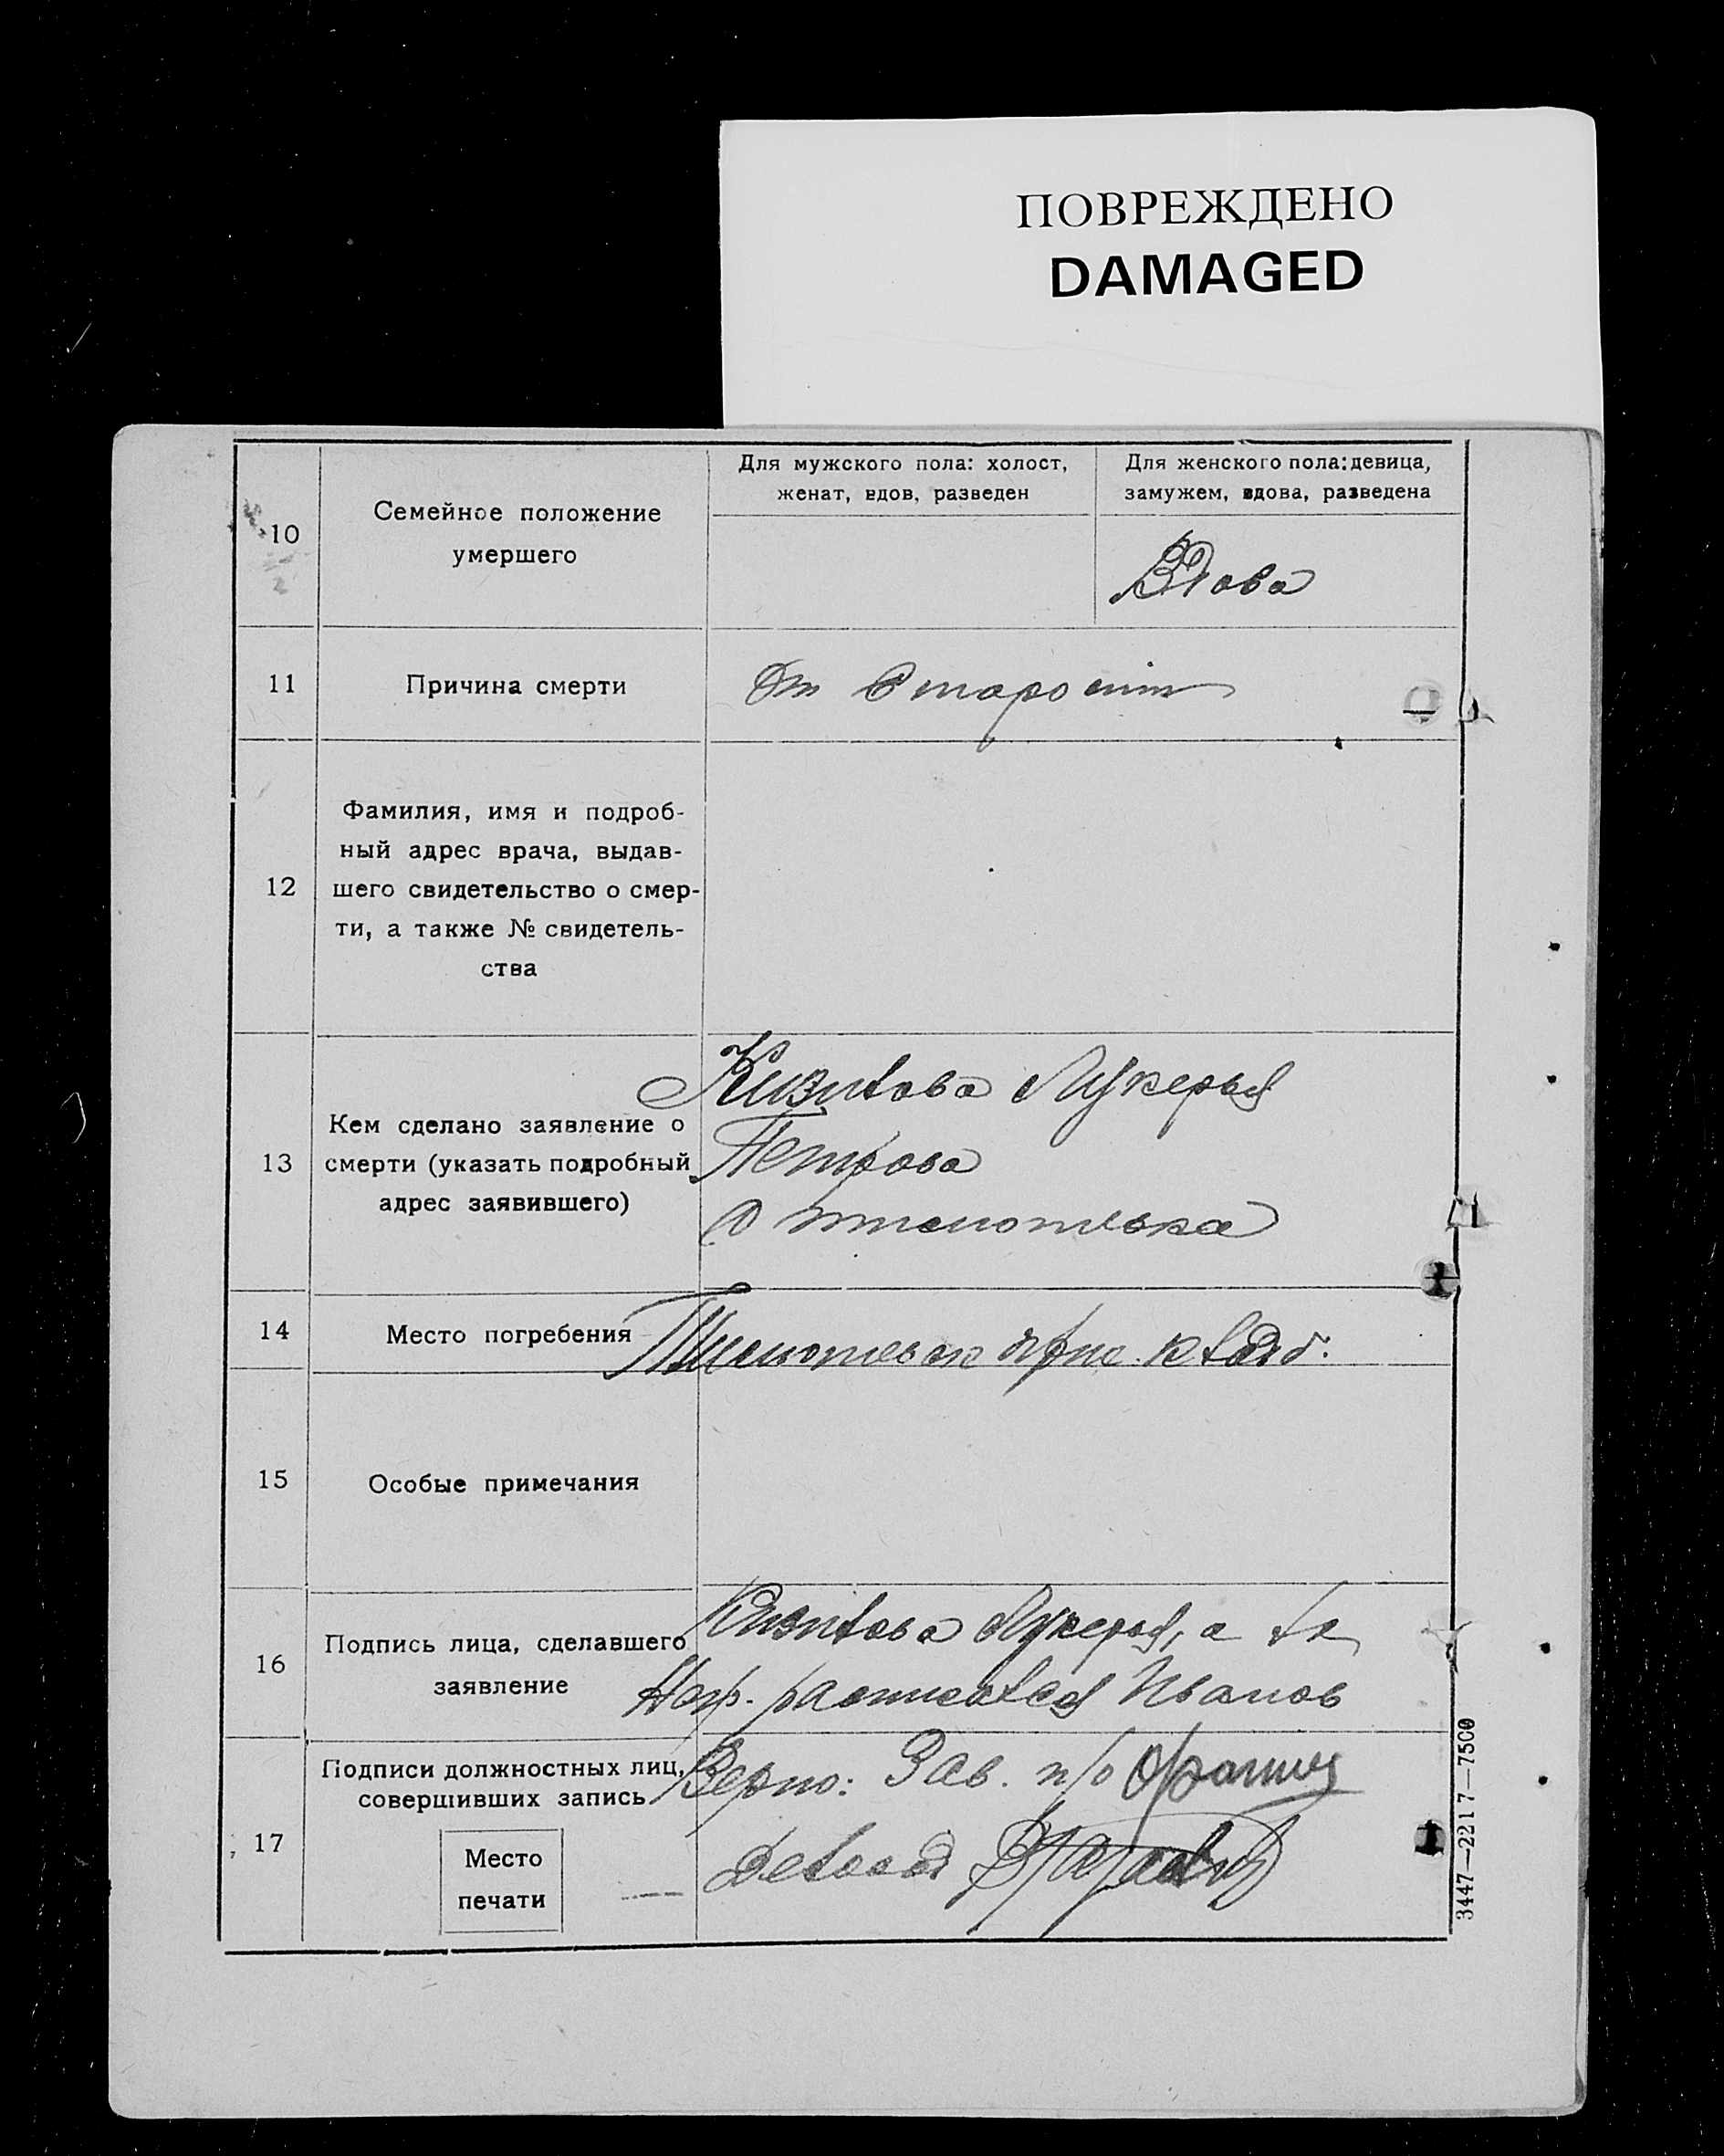 ПОВРЕЖДЕНО
DAMAGED
10
Семейное положение
умершего
Для мужского пола: холост,
женат, вдов, разведен
Для женского пола: девица,
замужем, вдова, разведена
Вдова
11
Причина смерти
От Старости
12
Фамилия, имя и подроб-
ный адрес врача, выдав-
шего свидетельство о смер-
ти, а также № свидетель-
ства
13
Кем сделано заявление о
смерти (указать подробный
адрес заявившего)
Лукерья
Петрова
14
Место погребения
15
Особые примечания
16
Подпись лица, сделавшего
заявление
Лукерья, а
расписался Иванов
17
Подписи должностных лиц,
совершивших запись
Место
печати
Верно: Зав. п/о
3447—2217—7500